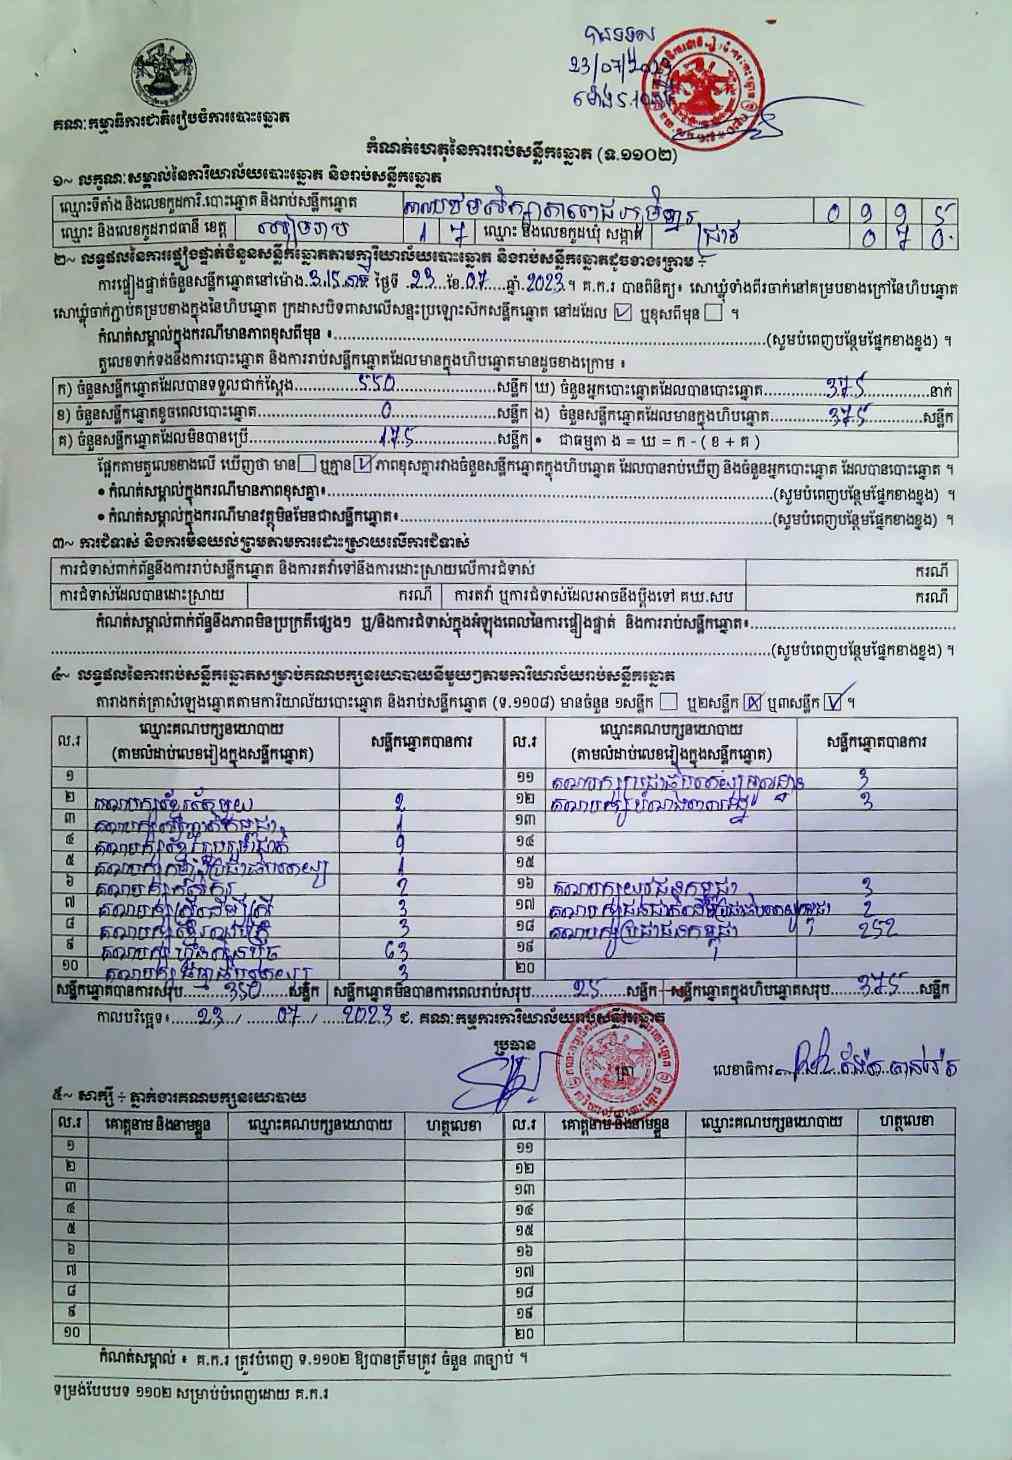 បានទទួល
23/07/2023
គណៈកម្មាធិការជាតិរៀបចំការបោះឆ្នោត
កំណត់ហេតុនៃការរាប់សន្លឹកឆ្នោត (ទ.១១០២)
១~ លក្ខណៈសម្គាល់នៃការិយាល័យបោះឆ្នោត និងរាប់សន្លឹកឆ្នោត
ឈ្មោះទីតាំង និងលេខកូដការិ.បោះឆ្នោត និងរាប់សន្លឹកឆ្នោត
ឈ្មោះ និងលេខកូដរាជធានី ខេត្ត សៀមរាប 1 7 ឈ្មោះ និងលេខកូដឃុំ សង្កាត់ ជ្រាវ
២~ លទ្ធផលនៃការផ្ទៀងផ្ទាត់ចំនួនសន្លឹកឆ្នោតតាមការិយាល័យបោះឆ្នោត និងរាប់សន្លឹកឆ្នោតដូចខាងក្រោម ÷
ការផ្ទៀងផ្ទាត់ចំនួនសន្លឹកឆ្នោតនៅម៉ោង 3:15 នាទី ថ្ងៃទី 23 ខែ 07 ឆ្នាំ 2023 ។ គ.ក.រ បានពិនិត្យ៖ សោឃ្លុំទាំងពីរចាក់នៅគម្របខាងក្រៅនៃហិបឆ្នោត
សោឃ្លុំចាក់ភ្ជាប់គម្របខាងក្នុងនៃហិបឆ្នោត ក្រដាសបិទពាសលើសន្ទះប្រឡោះស៊កសន្លឹកឆ្នោត នៅដដែល ☑ ឬខុសពីមុន ☐ ។
កំណត់សម្គាល់ក្នុងករណីមានភាពខុសពីមុន ៖ (សូមបំពេញបន្ថែមផ្នែកខាងខ្នង) ។
តួលេខទាក់ទងនឹងការបោះឆ្នោត និងការរាប់សន្លឹកឆ្នោតដែលមានក្នុងហិបឆ្នោតមានដូចខាងក្រោម ៖
ក) ចំនួនសន្លឹកឆ្នោតដែលបានទទួលជាក់ស្តែង 550 សន្លឹក ឃ) ចំនួនអ្នកបោះឆ្នោតដែលបានបោះឆ្នោត 375 នាក់
ខ) ចំនួនសន្លឹកឆ្នោតខូចពេលបោះឆ្នោត 0 សន្លឹក ង) ចំនួនសន្លឹកឆ្នោតដែលមានក្នុងហិបឆ្នោត 375 សន្លឹក
គ) ចំនួនសន្លឹកឆ្នោតដែលមិនបានប្រើ 175 សន្លឹក • ជាធម្មតា ង = ឃ = ក - ( ខ + គ )
ផ្អែកតាមតួលេខខាងលើ ឃើញថា មាន ☐ ឬគ្មាន ☑ ភាពខុសគ្នារវាងចំនួនសន្លឹកឆ្នោតក្នុងហិបឆ្នោត ដែលបានរាប់ឃើញ និងចំនួនអ្នកបោះឆ្នោត ដែលបានបោះឆ្នោត ។
• កំណត់សម្គាល់ក្នុងករណីមានភាពខុសគ្នា៖ (សូមបំពេញបន្ថែមផ្នែកខាងខ្នង) ។
• កំណត់សម្គាល់ក្នុងករណីមានវត្ថុមិនមែនជាសន្លឹកឆ្នោត៖ (សូមបំពេញបន្ថែមផ្នែកខាងខ្នង) ។
៣~ ការជំទាស់ និងការមិនយល់ព្រមតាមការដោះស្រាយលើការជំទាស់
ការជំទាស់ពាក់ព័ន្ធនឹងការរាប់សន្លឹកឆ្នោត និងការតវ៉ាទៅនឹងការដោះស្រាយលើការជំទាស់ ករណី
ការជំទាស់ដែលបានដោះស្រាយ ករណី ការតវ៉ា ឬការជំទាស់ដែលអាចនឹងប្តឹងទៅ គឃ.សប ករណី
កំណត់សម្គាល់ពាក់ព័ន្ធនឹងភាពមិនប្រក្រតីផ្សេងៗ ឬ/និងការជំទាស់ក្នុងអំឡុងពេលនៃការផ្ទៀងផ្ទាត់ និងការរាប់សន្លឹកឆ្នោត៖
(សូមបំពេញបន្ថែមផ្នែកខាងខ្នង) ។
៤~ លទ្ធផលនៃការរាប់សន្លឹកឆ្នោតសម្រាប់គណបក្សនយោបាយនីមួយៗតាមការិយាល័យរាប់សន្លឹកឆ្នោត
តារាងកត់ត្រាសំឡេងឆ្នោតតាមការិយាល័យបោះឆ្នោត និងរាប់សន្លឹកឆ្នោត (ទ.១១០៨) មានចំនួន ១សន្លឹក ☐ ឬ២សន្លឹក ☒ ឬ៣សន្លឹក ☑ ។
ល.រ ឈ្មោះគណបក្សនយោបាយ (តាមលំដាប់លេខរៀងក្នុងសន្លឹកឆ្នោត) សន្លឹកឆ្នោតបានការ ល.រ ឈ្មោះគណបក្សនយោបាយ (តាមលំដាប់លេខរៀងក្នុងសន្លឹកឆ្នោត) សន្លឹកឆ្នោតបានការ
១ ១១ 3
២ គណបក្សខ្មែរតែមួយ 2 ១២ 3
៣ 1 ១៣
៤ គណបក្សខ្មែររួបរួមជាតិ ១៤
៥ 1 ១៥
៦ គណបក្សកសិករ 2 ១៦ គណបក្សយុវជនកម្ពុជា 3
៧ គណបក្សស្ត្រីដើម្បីស្ត្រី 3 ១៧ 2
៨ គណបក្សខ្មែរអភិរក្ស 3 ១៨ គណបក្សប្រជាជនកម្ពុជា 252
៩ គណបក្សហ្វ៊ុនស៊ិនប៉ិច 63 ១៩
១០ គណបក្សធម្មាធិបតេយ្យ 3 ២០
សន្លឹកឆ្នោតបានការសរុប 350 សន្លឹក សន្លឹកឆ្នោតមិនបានការពេលរាប់សរុប 25 សន្លឹក សន្លឹកឆ្នោតក្នុងហិបឆ្នោតសរុប 375 សន្លឹក
កាលបរិច្ឆេទ៖ 23 / 07 / 2023 ជ. គណៈកម្មការការិយាល័យរាប់សន្លឹកឆ្នោត
ប្រធាន
ត្រា
លេខាធិការ
៥~ សាក្សី ÷ ភ្នាក់ងារគណបក្សនយោបាយ
ល.រ គោត្តនាម និងនាមខ្លួន ឈ្មោះគណបក្សនយោបាយ ហត្ថលេខា ល.រ គោត្តនាម និងនាមខ្លួន ឈ្មោះគណបក្សនយោបាយ ហត្ថលេខា
១ ១១
២ ១២
៣ ១៣
៤ ១៤
៥ ១៥
៦ ១៦
៧ ១៧
៨ ១៨
៩ ១៩
១០ ២០
កំណត់សម្គាល់ ៖ គ.ក.រ ត្រូវបំពេញ ទ.១១០២ ឱ្យបានត្រឹមត្រូវ ចំនួន ៣ច្បាប់ ។
ទម្រង់បែបបទ ១១០២ សម្រាប់បំពេញដោយ គ.ក.រ